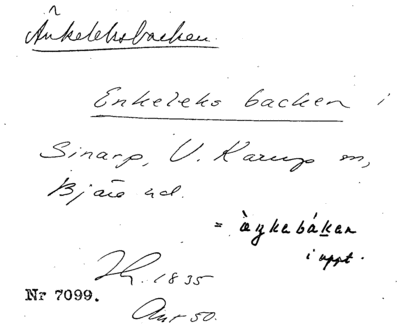 Änkeleksbacken.
Enkeleks backen i
Sinarp, V. Karup sn,
Bjäre hd.
= àŋkebákan
i uppt.
Th. 1835
Nr 7099.
Ant 50.